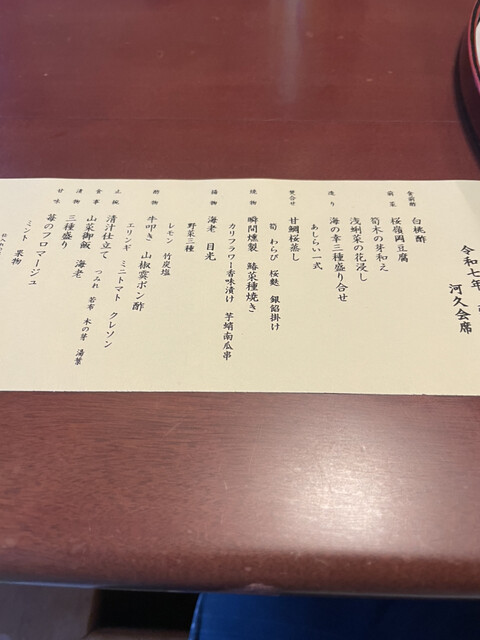 令和七年
河久会席
食前酢 白桃酢
前菜 桜嶺岡豆腐
筍木の芽和え
浅蜊菜の花浸し
造り 海の幸三種盛り合せ
あしらい一式
焚合せ 甘鯛桜蒸し
筍 わらび 桜麩 銀餡掛け
焼物 瞬間燻製 鰆菜種焼き
カリフラワー香味漬け 芋蛸南瓜串
揚物 海老 目光
野菜三種
レモン 竹炭塩
酢物 牛叩き 山椒霙ポン酢
エリンギ ミニトマト クレソン
止椀 清汁仕立て
つみれ 若布 木の芽 湯葉
食事 山菜御飯 海老
漬物 三種盛り
甘味 苺のフロマージュ
ミント 果物